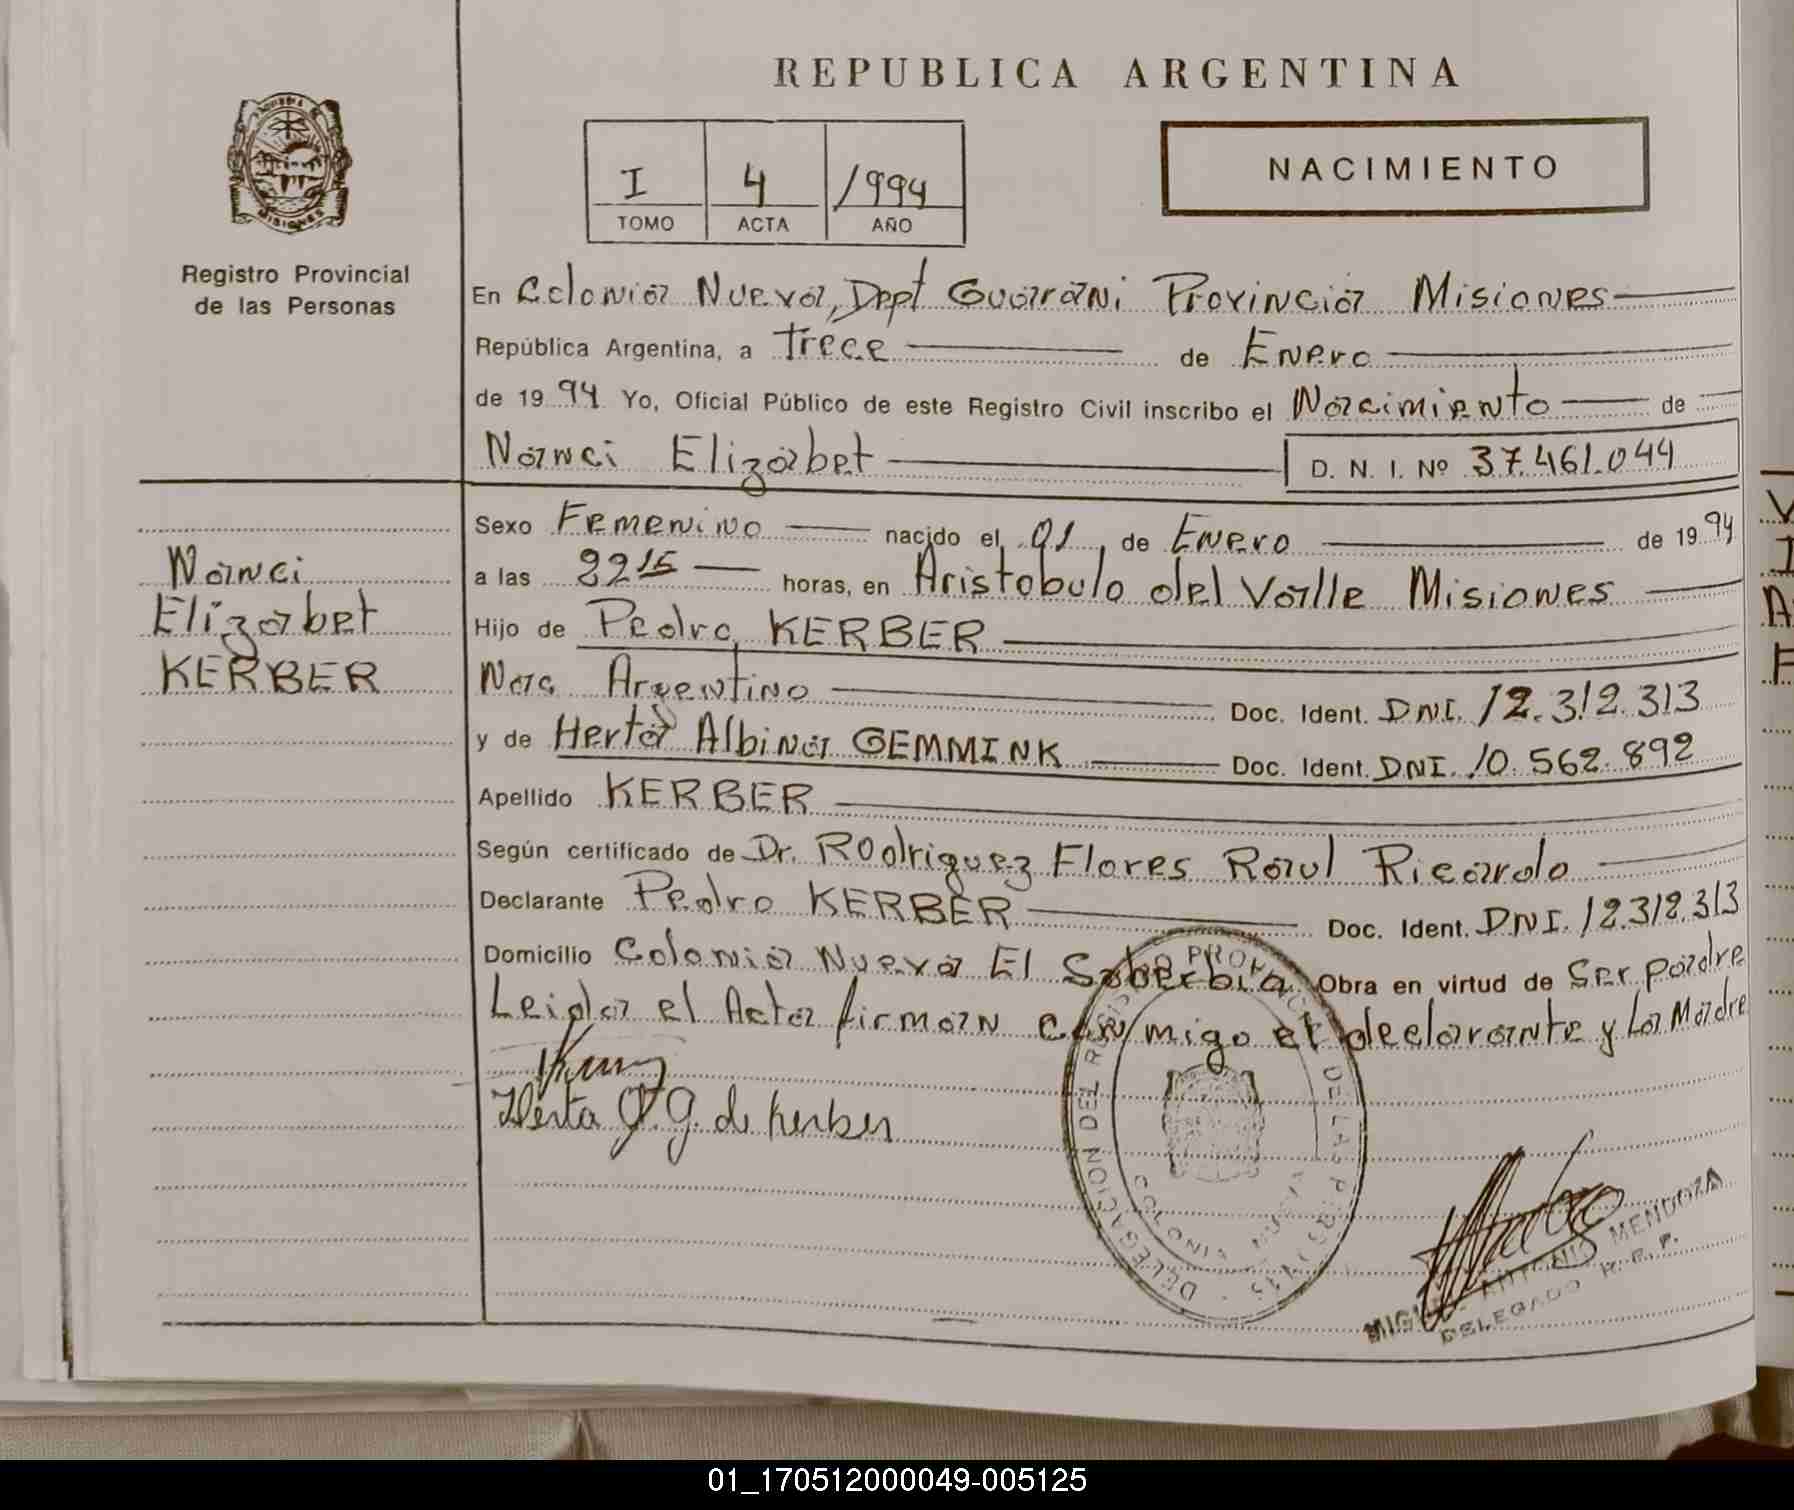 REPUBLICA ARGENTINA
MISIONES
Registro Provincial
de las Personas
I 4 1994
TOMO ACTA AÑO
NACIMIENTO
En Colonia Nueva, Dept Guarani Provincia Misiones
República Argentina, a Trece de Enero
de 1994 Yo, Oficial Público de este Registro Civil inscribo el Nacimiento de
Nanci Elizabet D. N. I. Nº 37.461.044
Nanci
Elizabet
KERBER
Sexo Femenino nacido el 01 de Enero de 1994
a las 2215 horas, en Aristobulo del Valle Misiones
Hijo de Pedro KERBER
Nac Argentino Doc. Ident. DNI. 12.312.313
y de Herta Albina GEMMINK Doc. Ident. DNI. 10.562.892
Apellido KERBER
Según certificado de Dr. Rodriguez Flores Raul Ricardo
Declarante Pedro KERBER Doc. Ident. DNI. 12.312.313
Domicilio Colonia Nueva El Soberbia Obra en virtud de Ser padre
Leida el Acta firman con migo el declarante y La Madre
Herta A. G. de Kerber
DELEGACION DEL REGISTRO PROVINCIAL DE LAS PERSONAS
MIGUEL ANTONIO MENDOZA
DELEGADO R. P. P.
V
I
A
F
01_170512000049-005125